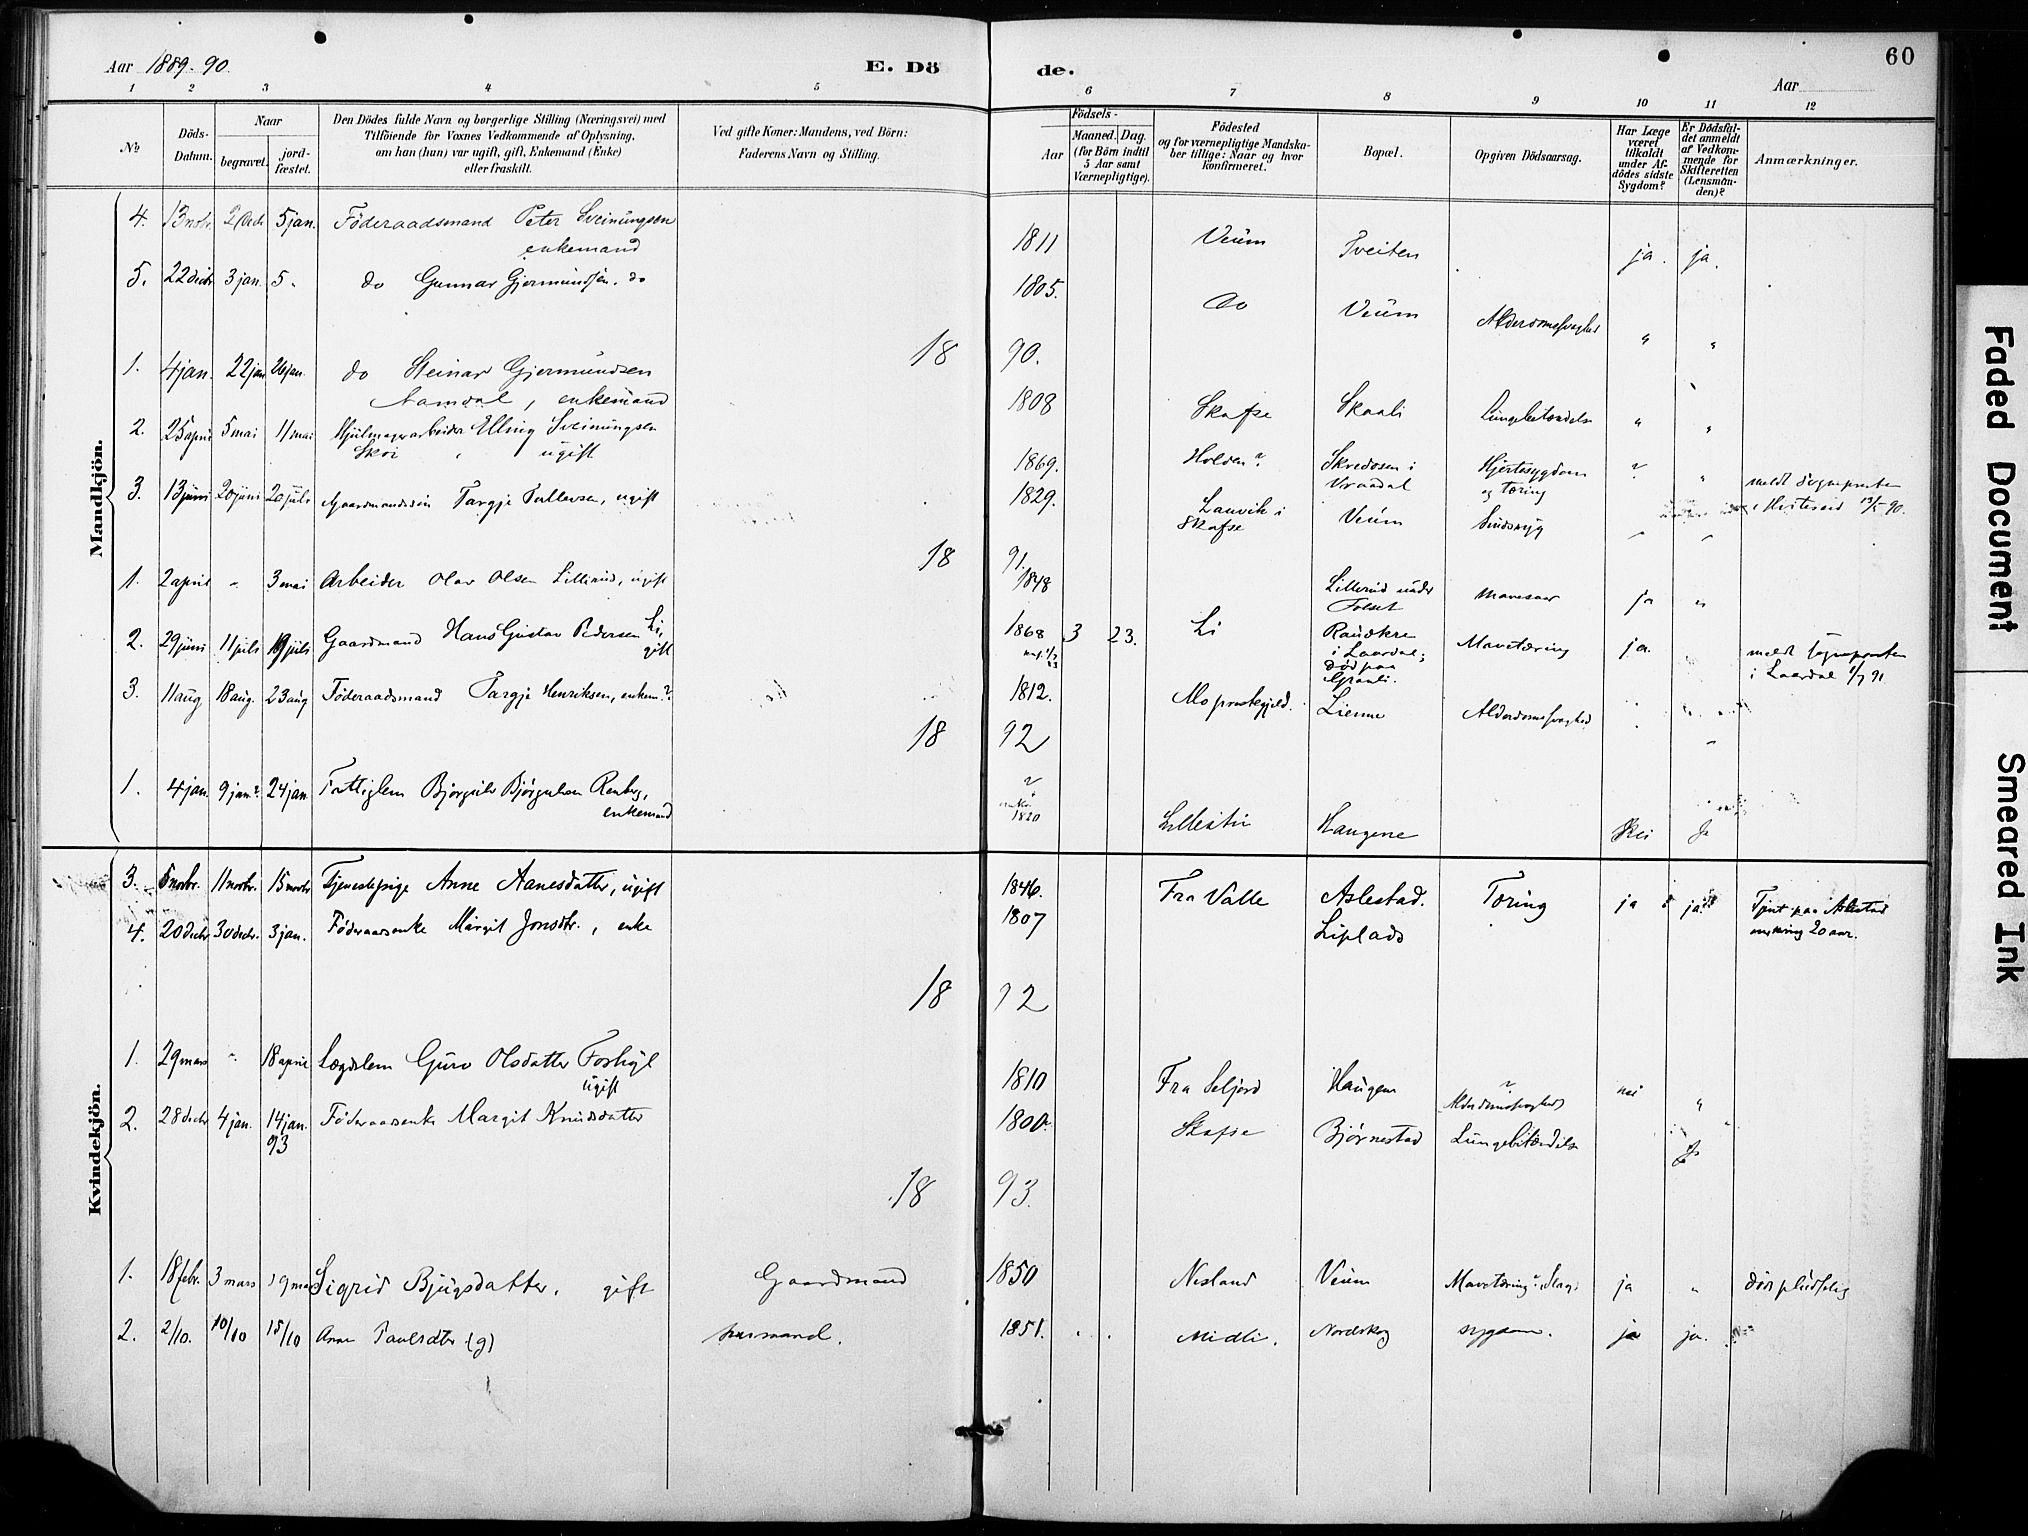 Aar 1889-90.
E. Dö
de.
Aar
60
1 2 3 4 5 6 7 8 9 10 11 12
№
Döds-Datum.
Naar
begravet.
jord-fæstet.
Den Dödes fulde Navn og borgerlige Stilling (Næringsvei) med
Tilföiende for Voxnes Vedkommende af Oplysning,
om han (hun) var ugift, gift, Enkemand (Enke)
eller fraskilt.
Ved gifte Koner: Mandens, ved Börn:
Faderens Navn og Stilling.
Födsels-
Aar
Maaned.
Dag.
(for Börn indtil
5 Aar samt
Værnepligtige).
Födested
og for værnepligtige Mandska-
ber tillige: Naar og hvor
konfirmeret.
Bopæl.
Opgiven Dödsaarsag.
Har Læge
været
tilkaldt
under Af-
dödes sidste
Sygdom?
Er Dödsfal-
det anmeldt
af Vedkom-
mende for
Skifteretten
(Lensman-
den)?
Anmærkninger.
Mandkjön.
4. 13 novbr. 5 jan. Föderaadsmand Peter Sveinungsen
enkemand
1811 Veum Tveiten ja. ja.
5. 22 decbr 3 jan. 5 " do Gunnar Gjermundsen. do
1805. do Veum Alderdomssvaghed " "
1890.
1. 4 jan. 22 jan 26 jan. do Steinar Gjermundsen
Aamdal, enkemand
1808 Skafse Skaali Lungebetændelse " "
2. 25 april 5 mai 11 mai Hjulmagerarbeider Elling Sveinungsen
Skoi ugift
1869. Holden? Skredosen i
Vraadal
Hjertesygdom
og tæring
? "
meldt sognepresten
i Kviteseid 13/5 90.
3. 13 juni 20 juni 20 juli Gaardmandssön Targje Tallevsen, ugift
1829. Lauvik i
Skafse
Veum Sindssyg " "
1891.
1. 2 april " 3 mai Arbeider Olav Olsen Lillerud, ugift
1848 Lillerud under
Folset
mavesaar ja "
2. 29 juni 11 juli 19 juli Gaardmand Hans Gustav Pedersen Li,
gift
1868 3 23. Li Raudkre
i Laardal;
död paa
Grauli.
Mavetæring ja. "
meldt sogneprsten
i Laardal 1/7 91
3. 11 aug 18 aug. 23 aug Föderaadsmand Targje Henriksen, enkem?
1812. Mo prestegjeld. Lienne Alderdomssvaghed
1892
1. 4 jan. 9 jan? 24 jan. Fattiglem Bjørgulv Bjørgulvsen Renberg,
enkemand
?
omkr.
1820
Lillestøi Haugene Nei Ja
Kvindekjön.
3. 5 novbr. 11 novbr. 15 novbr Tjenestepige Anne Aanesdatter, ugift
1846. Fra Valle Aslestad. Tæring ja ja Tjent paa Aslestad
omkring 20 aar.
4. 20 decbr 30 decbr. 3 jan. Föderaadsenke Margit Jonsdtr., enke
1807 Liplads
1892
1. 29 mars " 18 april Lægdslem Guro Olsdatter Foshyl
ugift
1810 Fra Seljord Haugen ? nei "
2. 28 decbr 4 jan. 14 jan.
93
Föderaadsenke Margit Knudsdatter
1800. Skafse Bjørnestad Alderdomssvaghed
Lungebetændelse
Ja
1893.
1. 18 febr. 3 mars 19 mars Sigrid Bjugsdatter, gift Gaardmand
1850 Nesland Veum Mavetæring? Slag? ja " död pludselig
2. 2/10. 10/10 15/10 Anne Paulsdtr (g) husmand.
1851. Midli. Nordskog sygdom. ja ja.
Faded Document
Smeared Ink